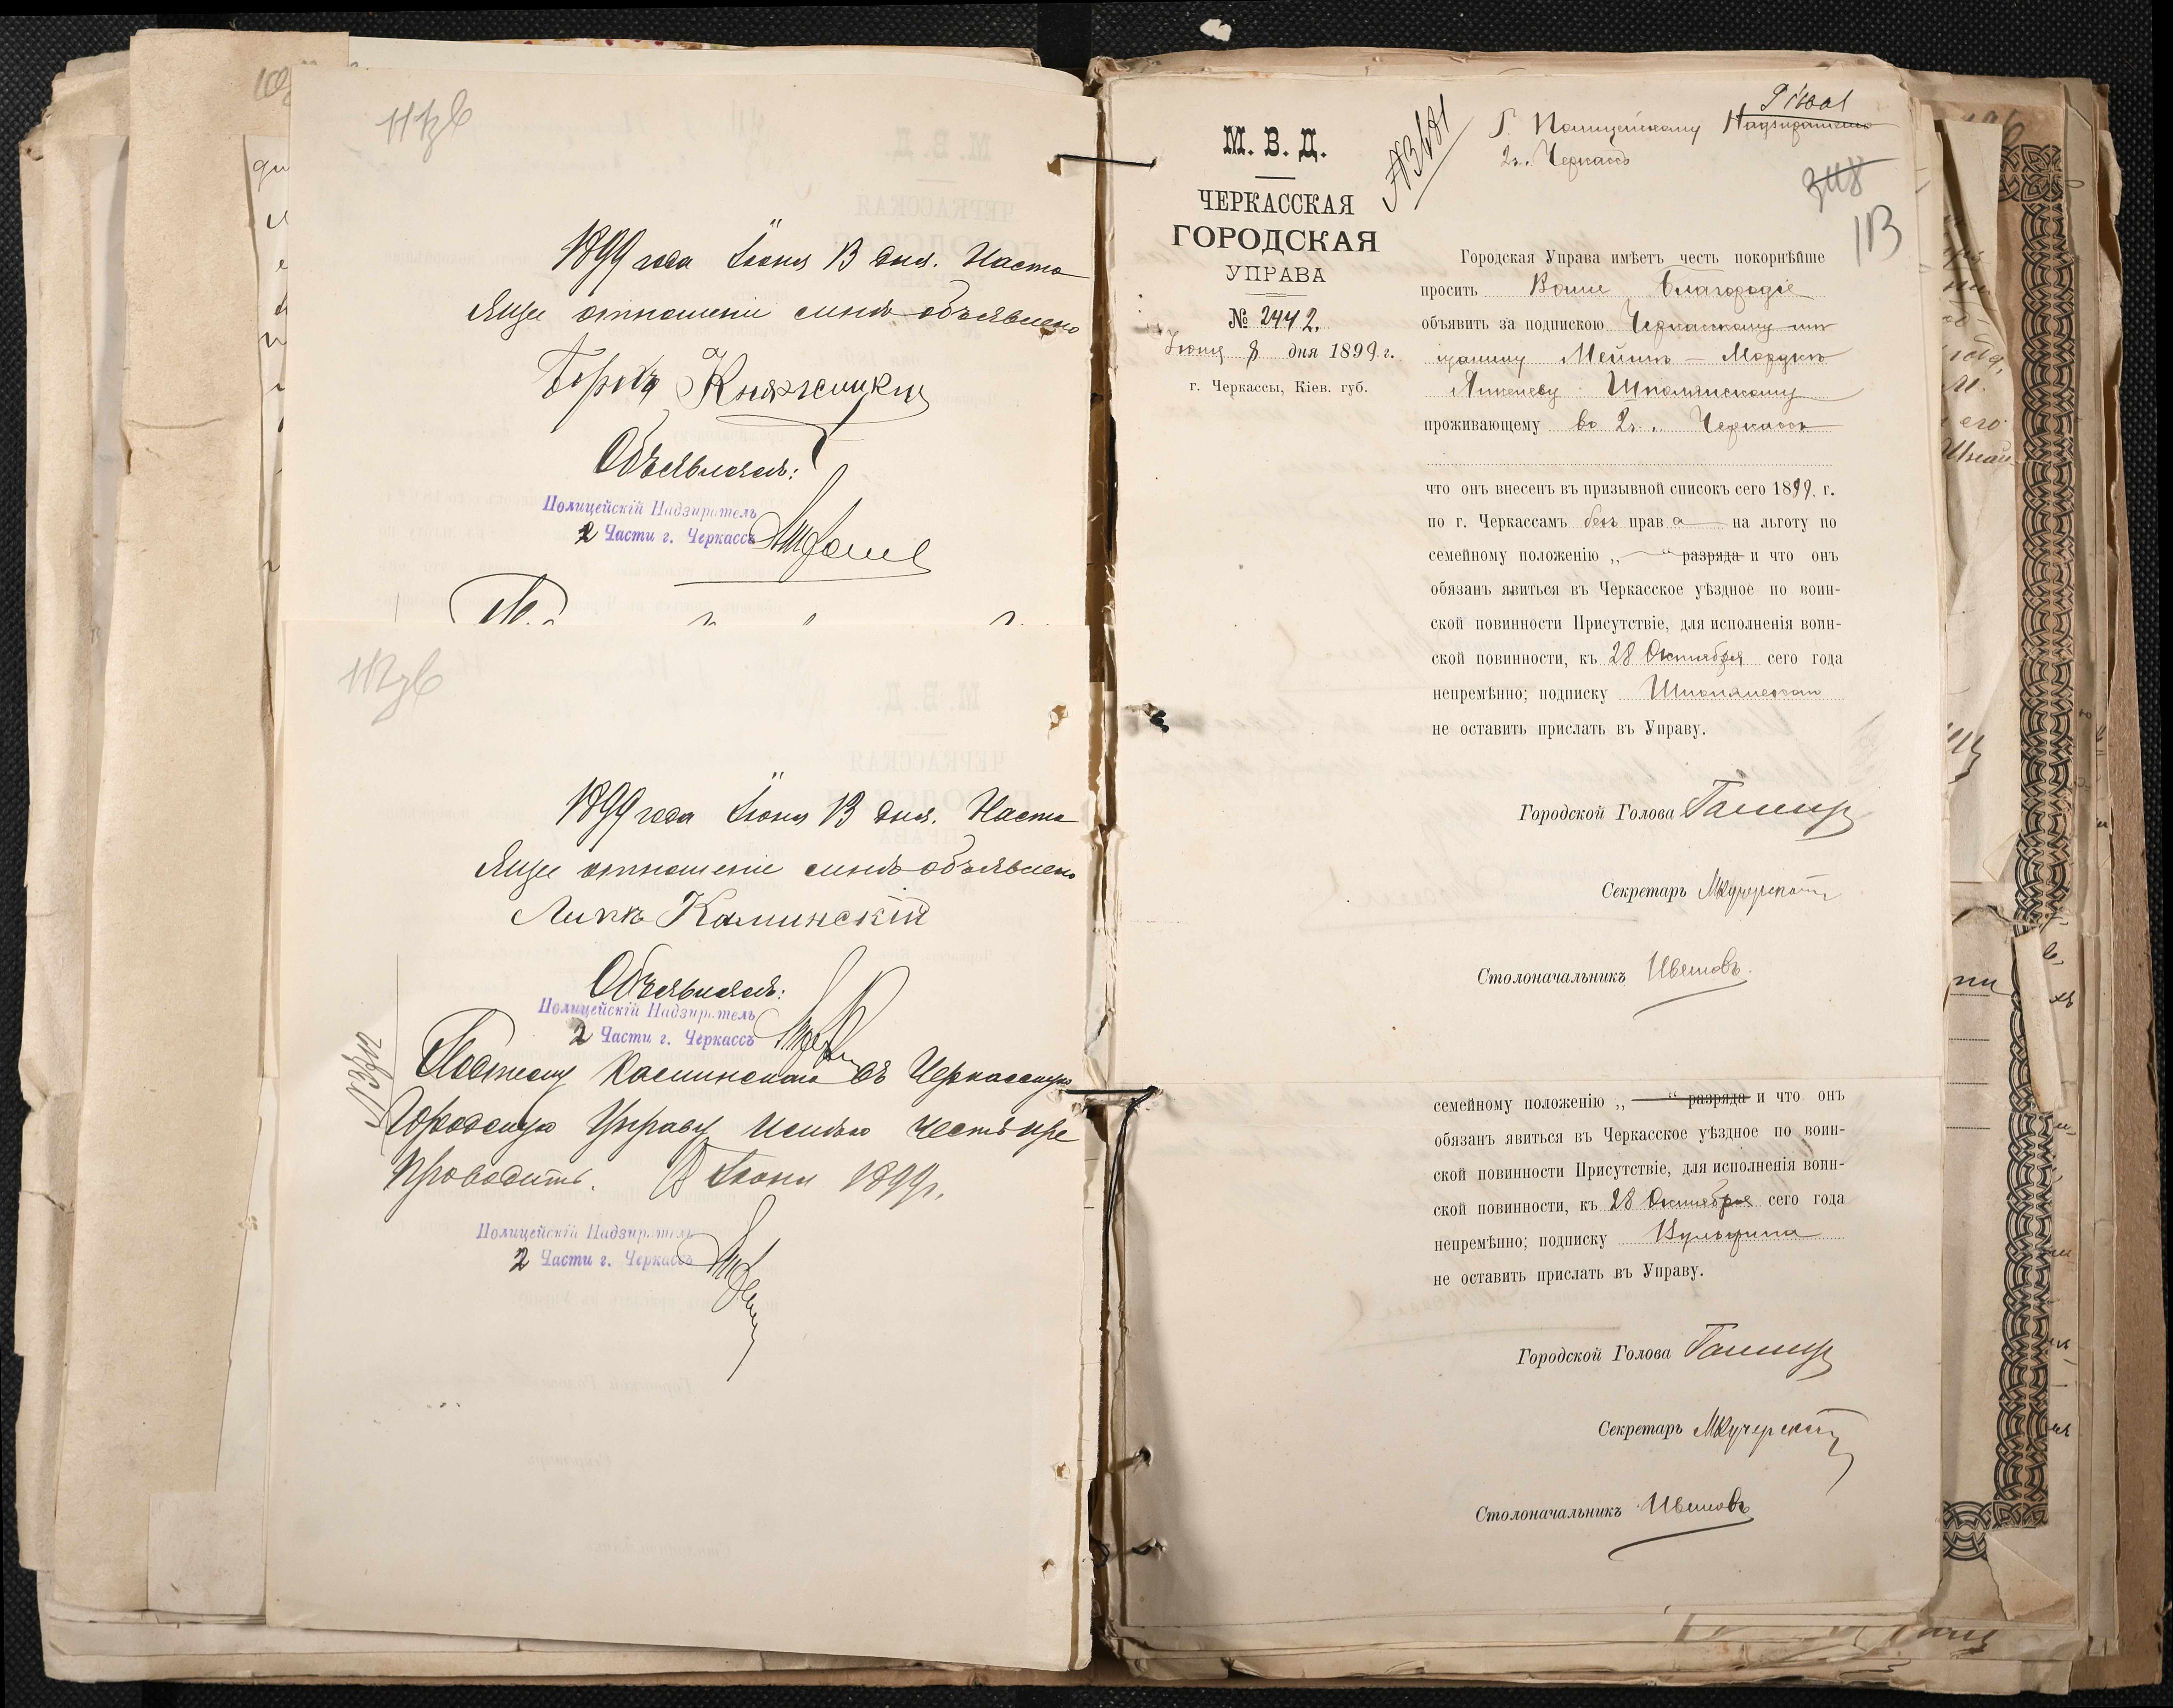 111зв
1899 года Іюня 13 дня. Насто
ящее отношеніе мнѣ объявлено
Княжицкій
Объявлялъ:
Полицейскій Надзиратель
2 Части г. Черкассъ
112зв
1899 года Іюня 13 дня. Насто
ящее отношеніе мнѣ объявлено
Каминскій
Объявлялъ:
Полицейскій Надзиратель
2 Части г. Черкассъ
Подписку Каминскаго въ Черкасскую
Городскую Управу имѣю честь пре
проводить. 13 Іюня 1899г.
Полицейскій Надзиратель
2 Части г. Черкассъ
М. В. Д.
ЧЕРКАССКАЯ
ГОРОДСКАЯ
УПРАВА
№ 2442.
Іюня 8 дня 1899 г.
г. Черкассы, Кіев. губ.
Г. Полицейскому Надзирателю
2 ч. Черкассъ
113
Городская Управа имѣетъ честь покорнѣйше
проситъ Ваше Благородіе
объявить за подпискою Черкасскому мѣ
щанину Мордко
Шполянскому
проживающему во 2 ч. Черкассъ
что онъ внесенъ въ призывной списокъ сего 1899. г.
по г. Черкассамъ безъ права на льготу по
семейному положенію „ “ разряда и что онъ
обязанъ явиться въ Черкасское уѣздное по воин-
ской повинности Присутствіе, для исполненія воин-
ской повинности, къ 28 Октября сего года
непремѣнно; подписку Шполянскаго
не оставить прислать въ Управу.
Городской Голова
Секретарь
Столоначальникъ Цвѣтовъ.
семейному положенію „ “ разряда и что онъ
обязанъ явиться въ Черкасское уѣздное по воин-
ской повинности Присутствіе, для исполненія воин-
ской повинности, къ 28 Октября сего года
непремѣнно; подписку
не оставить прислать въ Управу.
Городской Голова
Секретарь
Столоначальникъ Цвѣтовъ